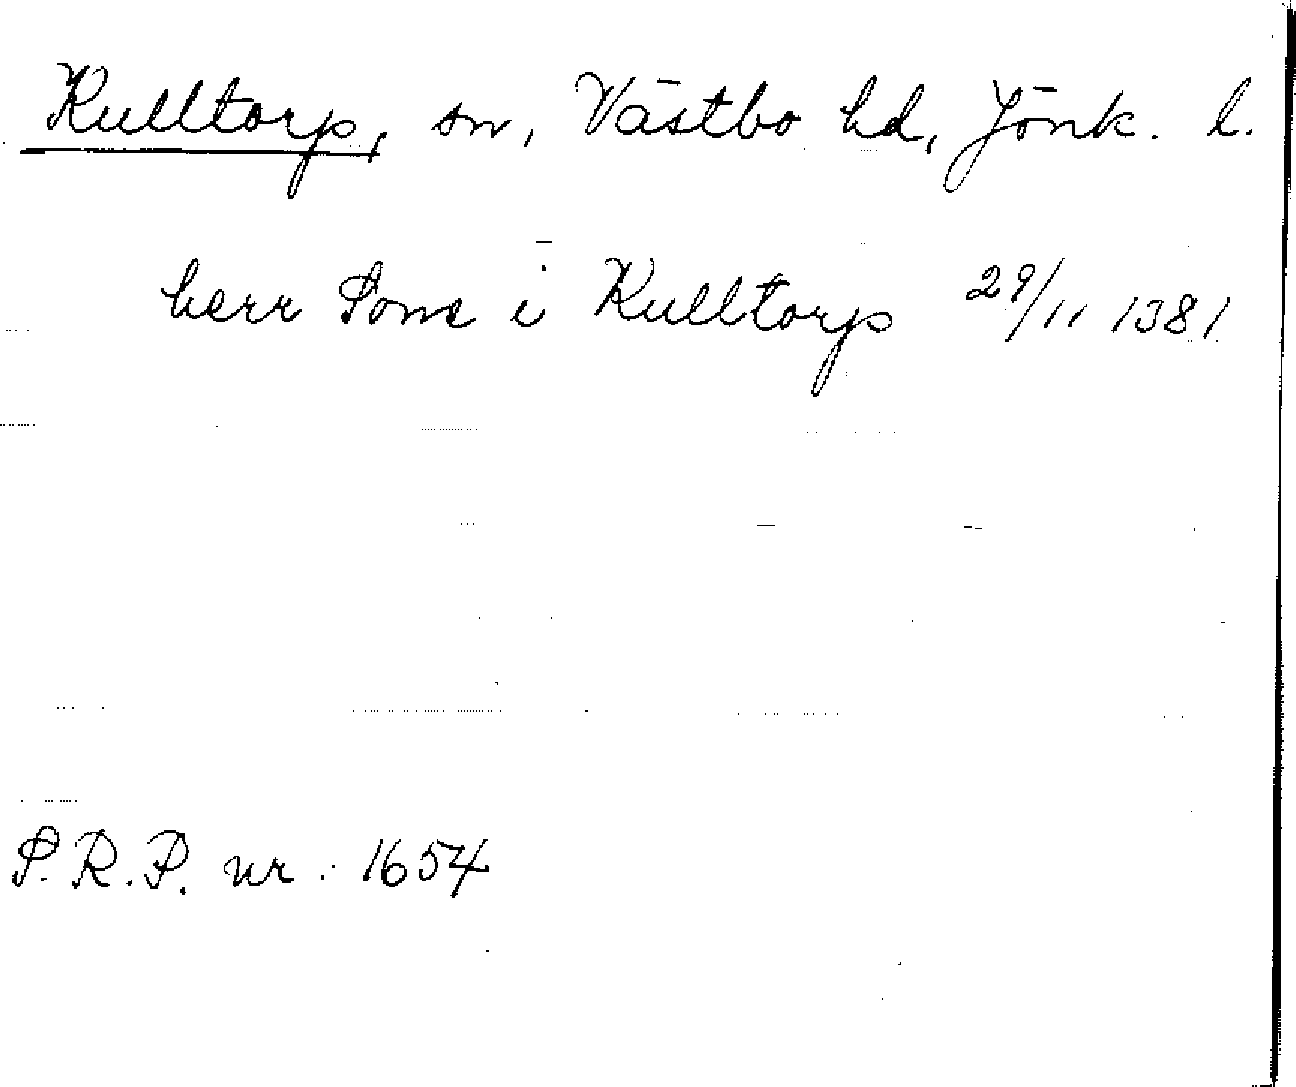 Kulltorp, sn, Västbo hd, Jönk. l.
herr Sone i Kulltorp 29/11 1381
S.R.P. nr. 1654